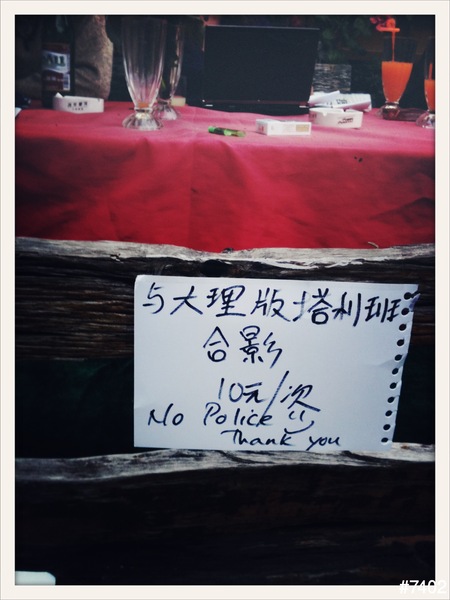 与大理版塔利班
合影
10元/次
No Police
Thank you
#7402